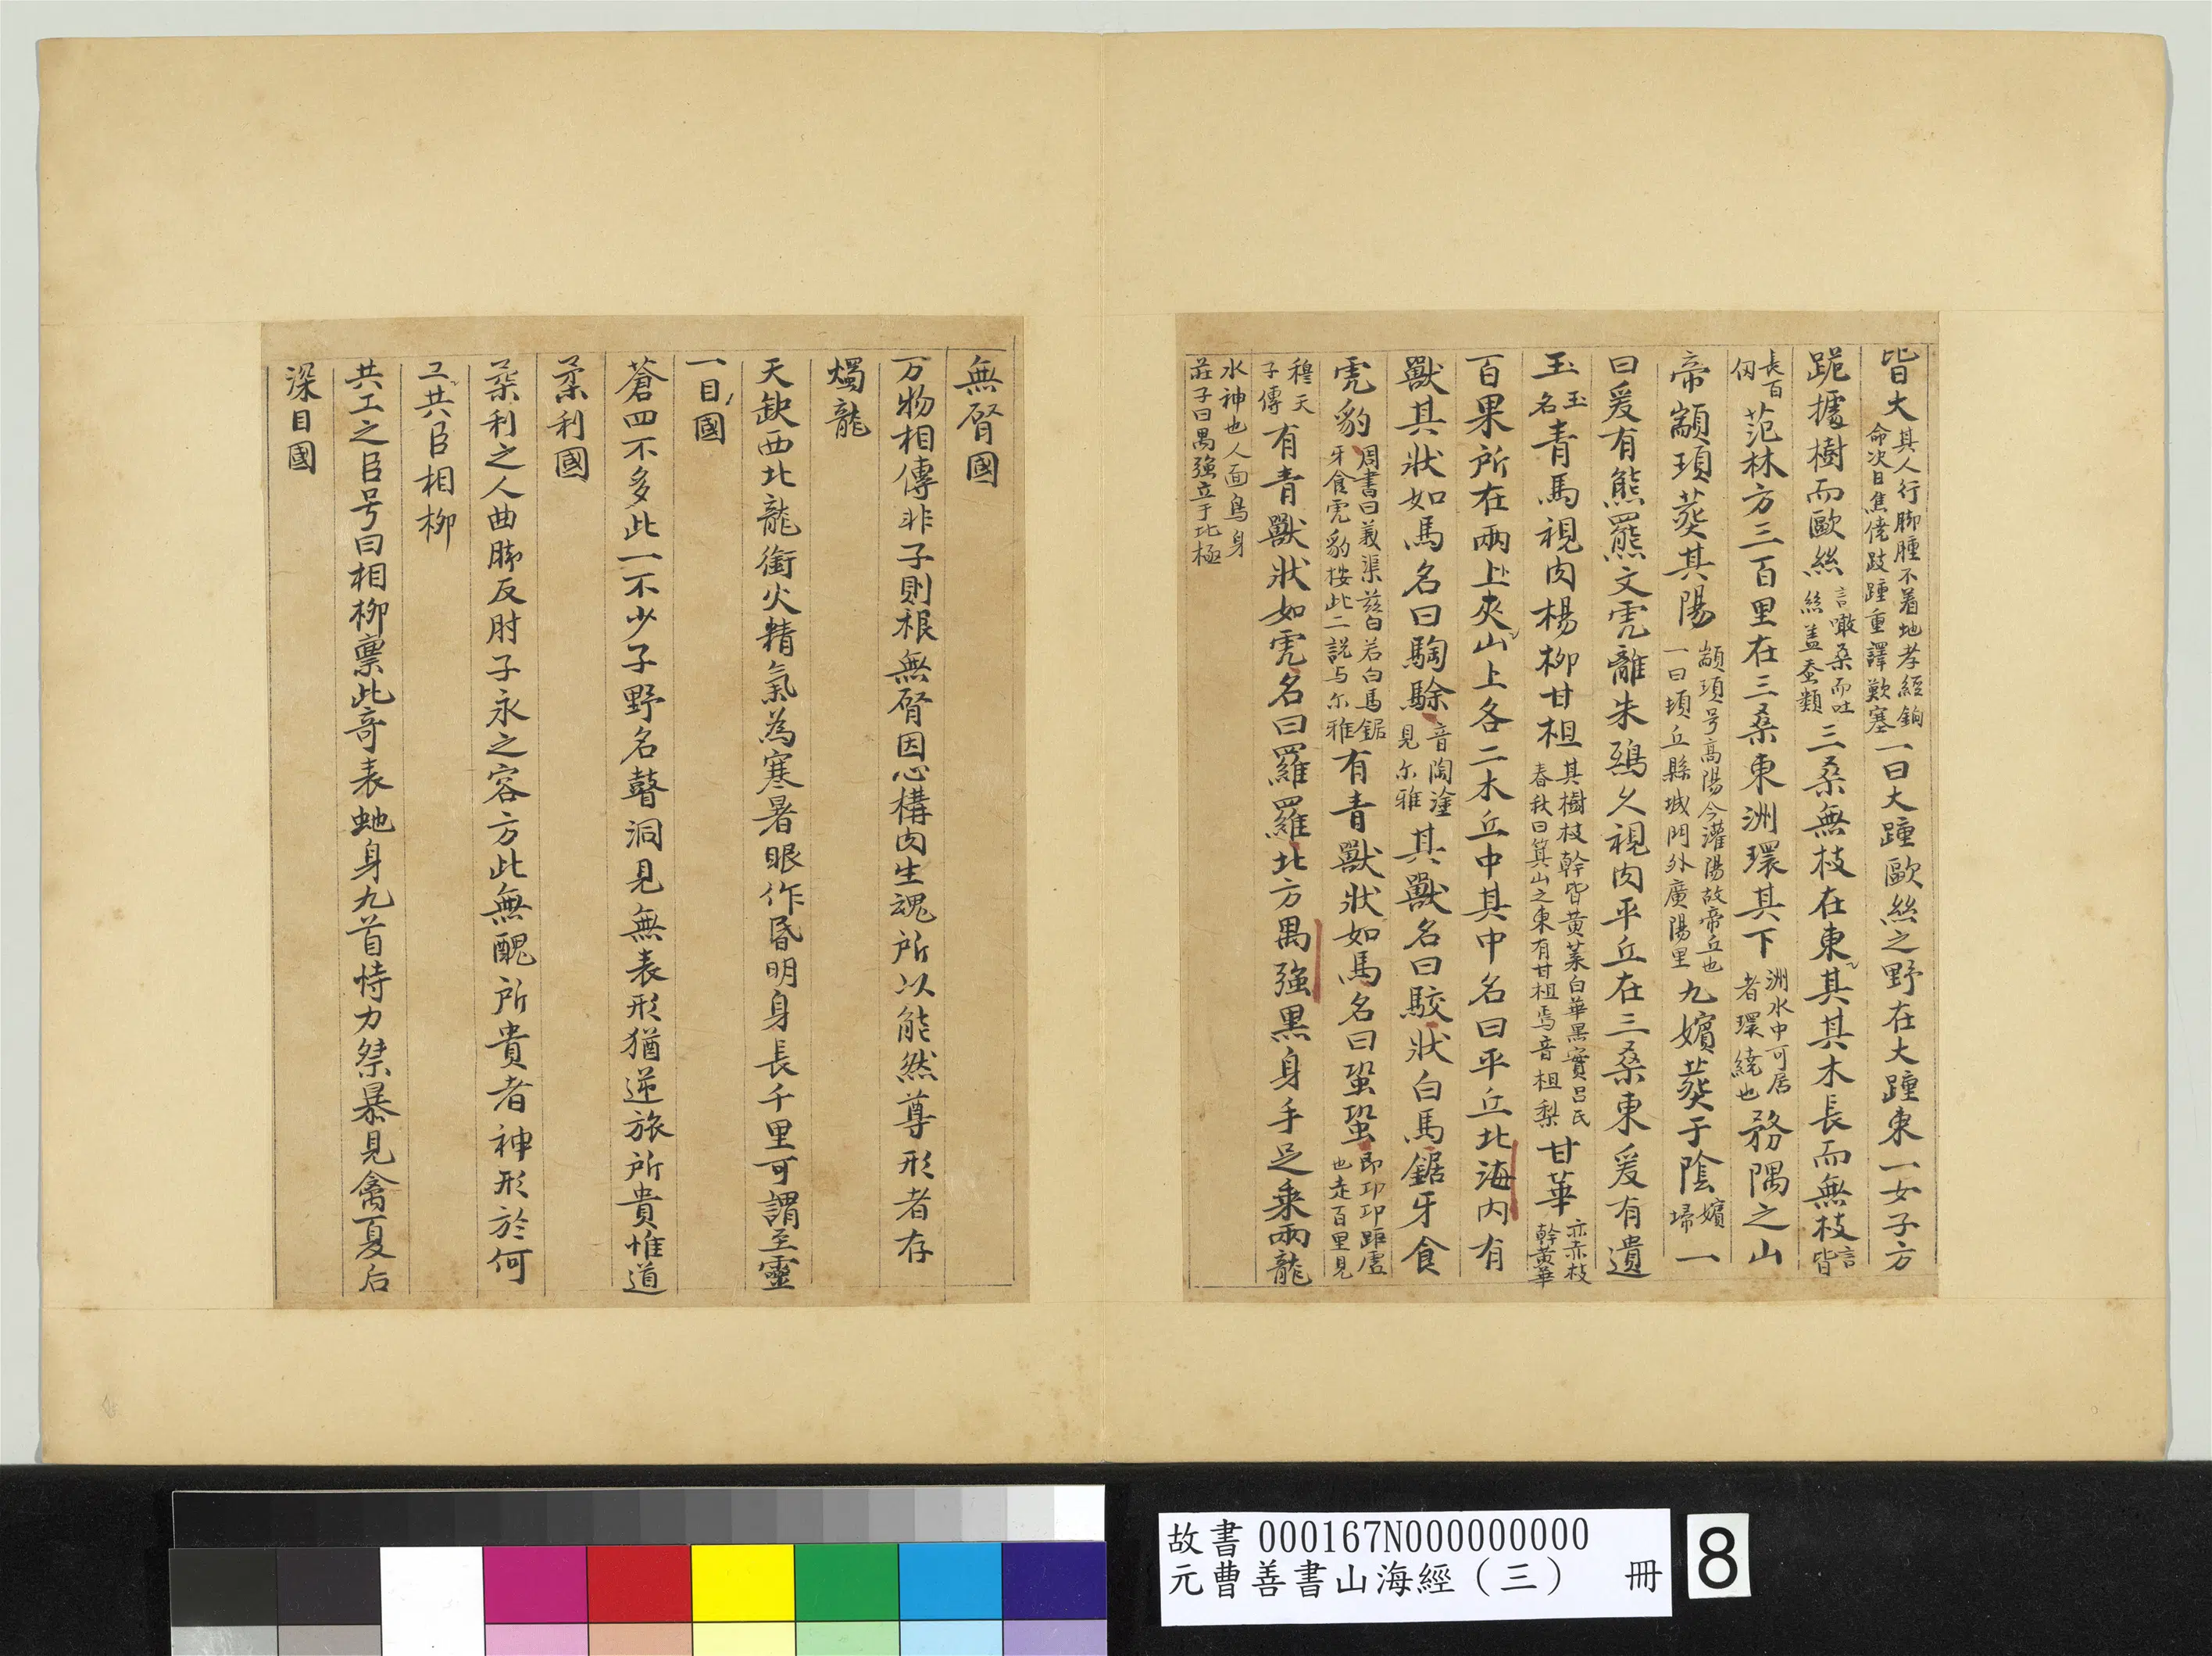 皆大其人行脚腫不着地孝經鉤命次曰焦僥跂踵重譯歎塞一曰大踵歐絲之野在大踵東一女子方
跪據樹而歐絲言噉桑而吐絲盖蚕類三桑無枝在東其其木長而無枝言皆
長百仞范林方三百里在三桑東洲環其下洲水中可居者環繞也務隅之山
帝顓頊葬其陽顓頊号高陽今濮陽故帝丘也一曰頓丘縣城門外廣陽里九嬪葬于陰嬪婦一
曰爰有熊羆文虎離朱鴟久視肉平丘在三桑東爰有遺
玉玉名青馬視肉楊柳甘柤其樹枝幹皆黄葉白華黒實吕氏春秋曰箕山之東有甘柤焉音柤梨甘華亦赤枝幹黄華
百果所在兩上夾山上各二木丘中其中名曰平丘北海内有
獸其狀如馬名曰騊駼音陶塗見尔雅其獸名曰駮狀白馬鋸牙食
虎豹周書曰義渠茲白若白馬鋸牙食虎豹按此二説与尔雅有青獸狀如馬名曰蛩蛩即卭卭距虚也走百里見
穆天子傳有青獸狀如虎名曰羅羅北方禺強黒身手足乗兩龍
水神也人面鳥身莊子曰禺強立于北極
無䏿國
万物相傳非子則根無䏿因心構肉生魂所以能然尊形者存
燭龍
天缺西北龍銜火精氣為寒暑眼作昏明身長千里可謂至靈
一目國
蒼四不多此一不少子野名瞽洞見無表形猶逆旅所貴惟道
柔利國
柔利之人曲脚反肘子永之容方此無醜所貴者神形於何
工共臣相柳
共工之臣号曰相柳稟此奇表虵身九首恃力桀暴見禽夏后
深目國
故書 000167N000000000
元曹善書山海經（三） 冊
8